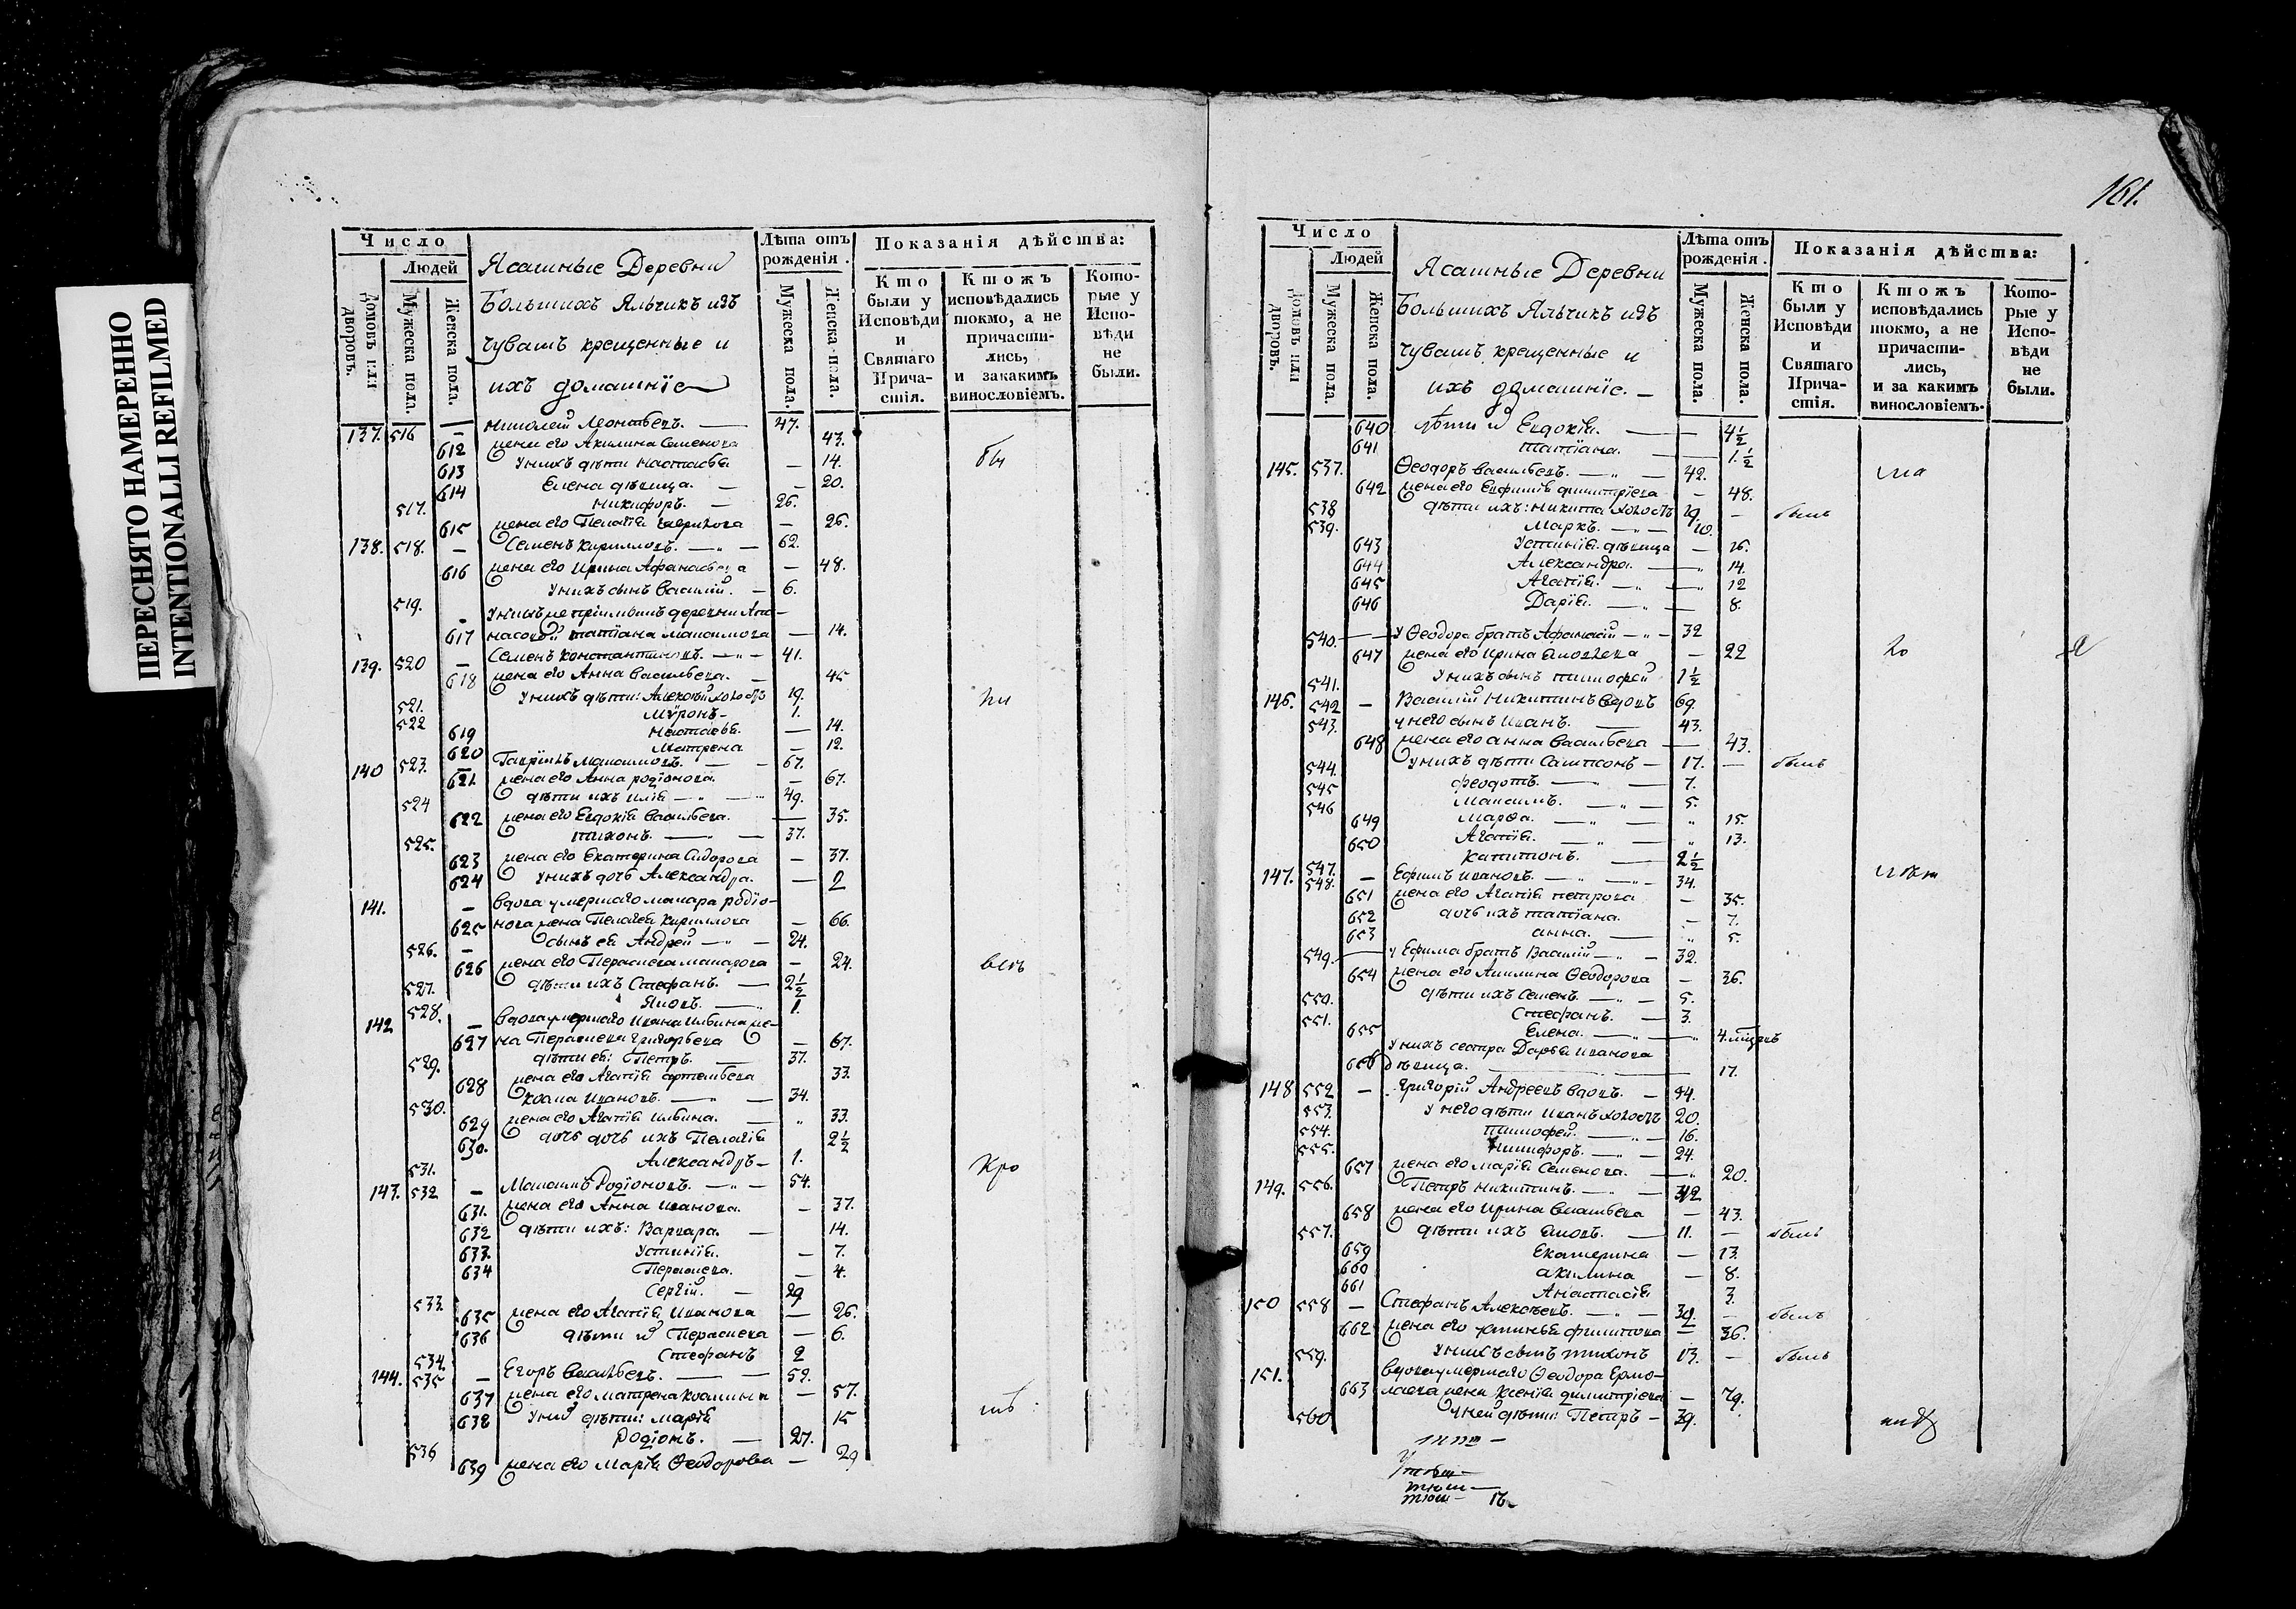 ПЕРЕСНЯТО НАМЕРЕННО
INTENTIONALLI REFILMED
Число
Людей
Домовъ или дворовъ.
Мужеска пола.
Женска пола.
Ясашные Деревни
Большихъ Яльчикъ изъ
чувашъ крещенные и
ихъ домашніе
Лѣта отъ рожденія.
Мужеска пола.
Женска пола.
Показанія дѣйства:
Кто были у Исповѣди и Святаго Причастія.
Ктожъ исповѣдались токмо, а не причастились, и закакимъ винословіемъ.
Которые у Исповѣди не были.
137. 516 — Николай Леонтьевъ. — 47.
612 жена его Акилина Семенова 43.
613 У нихъ дѣти Настасья — 14.
614 Елена дѣвица. — 20.
517. Никифоръ. — 26.
615 жена его Пелагія Гаврилова — 26.
138. 518. — Семенъ Кириловъ. — 62.
616 жена его Ирина Афанасьева — 48.
519. У нихъ сынъ Василій. — 6.
617 насовой Татіана Максимова — 14.
139. 520 — Семенъ Константиновъ. — 41.
618 жена его Анна Васильева. — 45
521. У нихъ дѣти: Алексѣй холостъ 19.
522 Мѵронъ — 1.
619 Настасья. — 14.
620 Матрена — 12.
140 523. — Гавріилъ Максимовъ. — 67.
621. жена его Анна Родіонова. — 67.
524 дѣти ихъ Илія — 49.
622 жена его Евдокія Васильева. — 35.
525. Тихонъ. — 37.
623 жена его Екатерина Сидорова — 37.
624 У нихъ дочь Александра. — 2
141. — вдова умершаго Макара Родіо-
625 нова жена Пелагея Кирилова — 66.
526. — сынъ ея Андрей — 24.
626 жена его Параскева Макарова — 24.
527. дѣти ихъ Стефанъ. — 2½
528. Яковъ. — 1.
142 — вдова умершаго Ивана Ильина же-
627 на Параскева Григорьева — 67.
529. дѣти ея: Петръ. — 37.
628 жена его Агапія Артемьева 33.
530. Козма Ивановъ. — 34.
629 жена его Агапія Ильина. — 33.
630. дочь ихъ Пелагія 2½
531. Александръ — 1.
143. 532 — Максимъ Родіоновъ. — 54.
631. жена его Анна Иванова. — 37.
632 дѣти ихъ: Варвара. — 14.
633. Устинія. — 7.
634 Параскева. — 4.
533. Сергій. — 29
635 жена его Агапія Иванова — 26.
636 дѣти Параскева — 6.
534. Стефанъ 2
144. 535 — Егоръ Васильевъ. — 59.
637 жена его Матрена Козмина — 57.
638 дѣти: Марія 15
536 Родіонъ. — 27.
639 жена его Марія Ѳеодорова — 29
161.
Число
Людей
Домовъ или дворовъ.
Мужеска пола.
Женска пола.
Ясашные Деревни
Большихъ Яльчикъ изъ
чувашъ крещенные и
ихъ домашніе. —
Лѣта отъ рожденія.
Мужеска пола.
Женска пола.
Показанія дѣйства:
Кто были у Исповѣди и Святаго Причастія.
Ктожъ исповѣдались токмо, а не причастились, и за какимъ винословіемъ.
Которые у Исповѣди не были.
640 дѣти Евдокія. — 4½
641 Татіана. — 1½
145. 537. Ѳеодоръ Васильевъ. — 42.
642 жена его Евфимія Димитріева — 48.
538 дѣти ихъ: Никита холостъ 19. — былъ
539. Маркъ. — 10.
643 Устинія дѣвица — 16.
644 Александра. — 14.
645 Агапія. — 12
646 Дарія. — 8.
540. — У Ѳеодора братъ Афанасій — 32
647 жена его Ирина Яковлева — 22
541. У нихъ сынъ Тимофей 1½
146. 542 — Василій Никитинъ вдовъ 69.
543. у него сынъ Иванъ. — 43.
648 жена его Анна Васильева — 43.
544. У нихъ дѣти Сампсонъ — 17. — былъ
545 Феодотъ. — 7.
546 Максимъ. — 5.
649 Марѳа. — 15.
650 Агапія. — 13.
547. Капитонъ. — 2½
147. 548. — Ефимъ Ивановъ. — 34.
651 жена его Агапія Петрова — 35.
652 дочь ихъ Татіана. — 7.
653 Анна. — 5.
549. — У Ефима братъ Василій — 32.
654 жена его Акилина Ѳеодорова — 36.
550. дѣти ихъ Семенъ. — 5.
551. Стефанъ. — 3.
655 Елена. — 4.
У нихъ сестра Дарья Иванова
656 дѣвица. — 17.
148 552 — Григорій Андреевъ вдовъ. — 94.
553. У него дѣти Иванъ холостъ 20.
554. Тимофей. — 16.
555. Никифоръ. — 24.
657 жена его Марія Семенова. — 20.
149. 556. Петръ Никитинъ. —
658 жена его Ирина Васильева — 43.
557. дѣти ихъ Яковъ. — 11. — былъ
659 Екатерина — 13.
660 Акилина — 8.
661 Анастасія 3.
150 558 — Стефанъ Алексѣевъ. — 39. — былъ
662 жена его Устинья Филипова — 36.
559. У нихъ сынъ Тихонъ 13. — былъ
151. вдова умершаго Ѳеодора Ермо-
663 лаева жена Ксенія Димитріева — 79.
560 У ней дѣти: Петръ — 39.